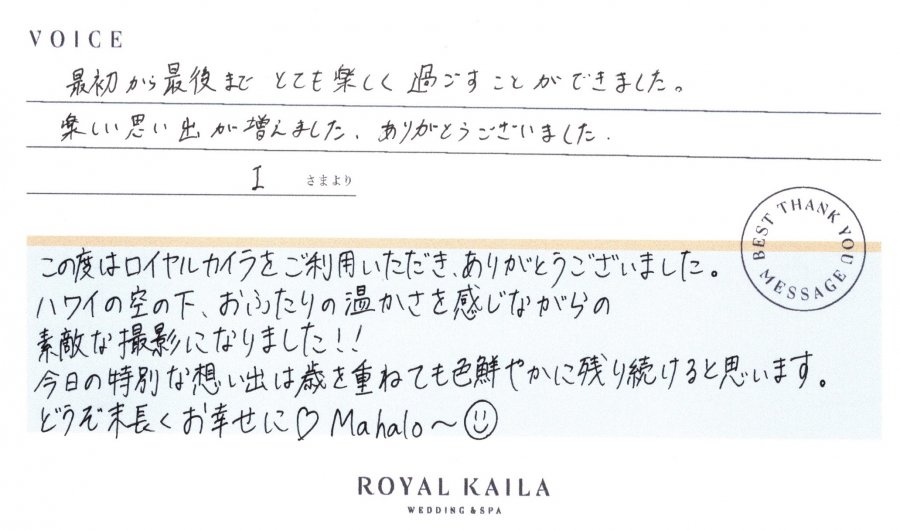 VOICE
最初から最後まで とても楽しく過ごすことができました。
楽しい思い出が増えました、ありがとうございました.
I さまより
BEST THANK YOU MESSAGE
この度はロイヤルカイラをご利用いただき、ありがとうございました。
ハワイの空の下、おふたりの温かさを感じながらの
素敵な撮影になりました!!
今日の特別な想い出は歳を重ねても色鮮やかに残り続けると思います。
どうぞ末長くお幸せに♡ Mahalo〜☺
ROYAL KAILA
WEDDING & SPA